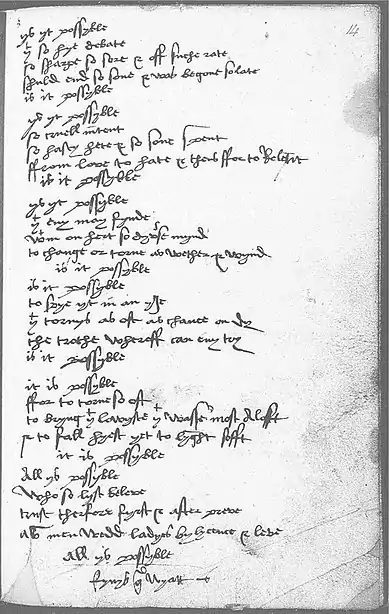 14
ys yt possyble
yt so hye debate
so sharpe so sore & off suche rate
shuld end so sone & was begone so late
is it possyble
ys yt possyble
so cruell intent
so hasty hete & so sone spent
ffrom love to hate & thens ffor to Relent
is it possyble
ys yt possyble
yt eny may fynde
wtin on hert so dyverse mynd
to change or torne as wether & wynd
is it possyble
is it possyble
to spye yt in an yIe
yt tornys as oft as chance on dy
the trothe wheroff can eny try
is it possyble
it is possyble
ffor to torne so oft
to bryng yt lowyste yt wasse most Aloft
& to fall hyest yet to lyght sofft
it is possyble
All ys possyble
Who so lyst beleve
trust therfore fyrst & after preve
As men wedd ladyes by lycence & leve
All ys possyble
fynys qd Wyatt